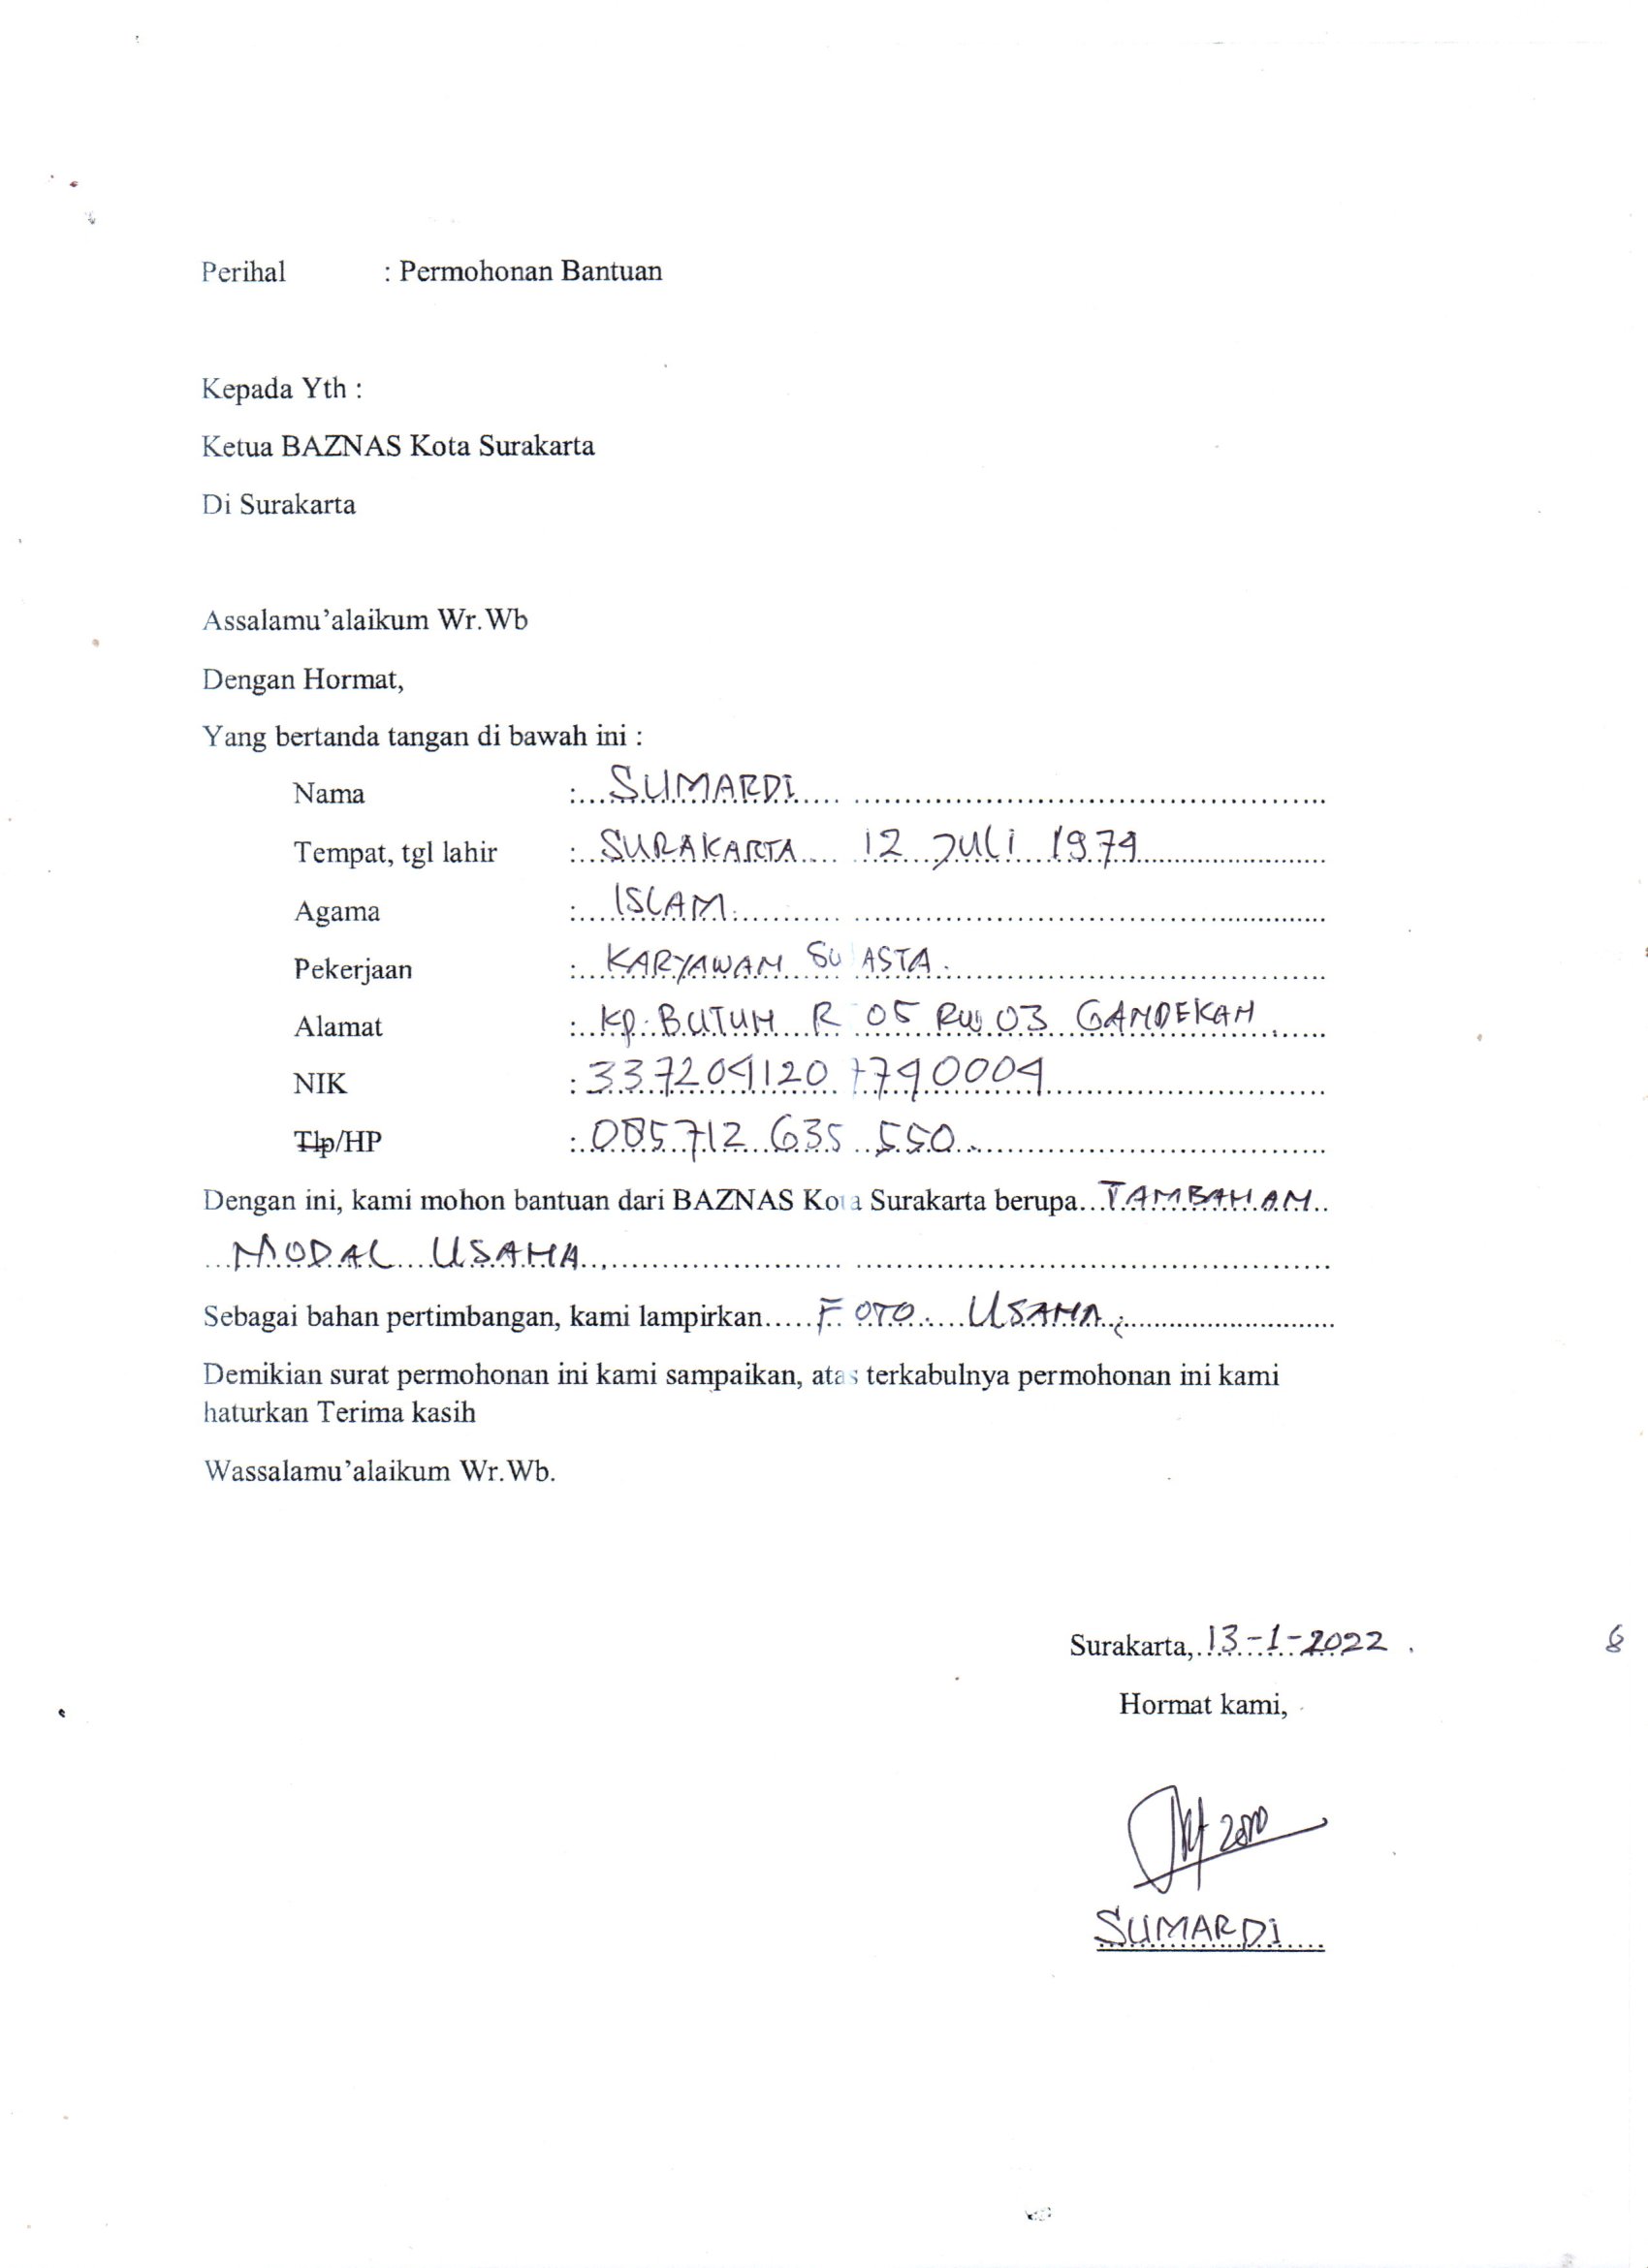 Perihal : Permohonan Bantuan
Kepada Yth :
Ketua BAZNAS Kota Surakarta
Di Surakarta
Assalamu'alaikum Wr.Wb
Dengan Hormat,
Yang bertanda tangan di bawah ini :
Nama : SUMARDI
Tempat, tgl lahir : SURAKARTA 12 JULI 1974
Agama : ISLAM
Pekerjaan : KARYAWAN SWASTA
Alamat : Kp. BUTUH RT 05 RW 03 GANDEKAN
NIK : 3372041207740004
Tlp/HP : 085712 635 550
Dengan ini, kami mohon bantuan dari BAZNAS Kota Surakarta berupa TAMBAHAN
MODAL USAHA
Sebagai bahan pertimbangan, kami lampirkan FOTO USAHA
Demikian surat permohonan ini kami sampaikan, atas terkabulnya permohonan ini kami
haturkan Terima kasih
Wassalamu'alaikum Wr.Wb.
Surakarta, 13-1-2022
Hormat kami,
SUMARDI